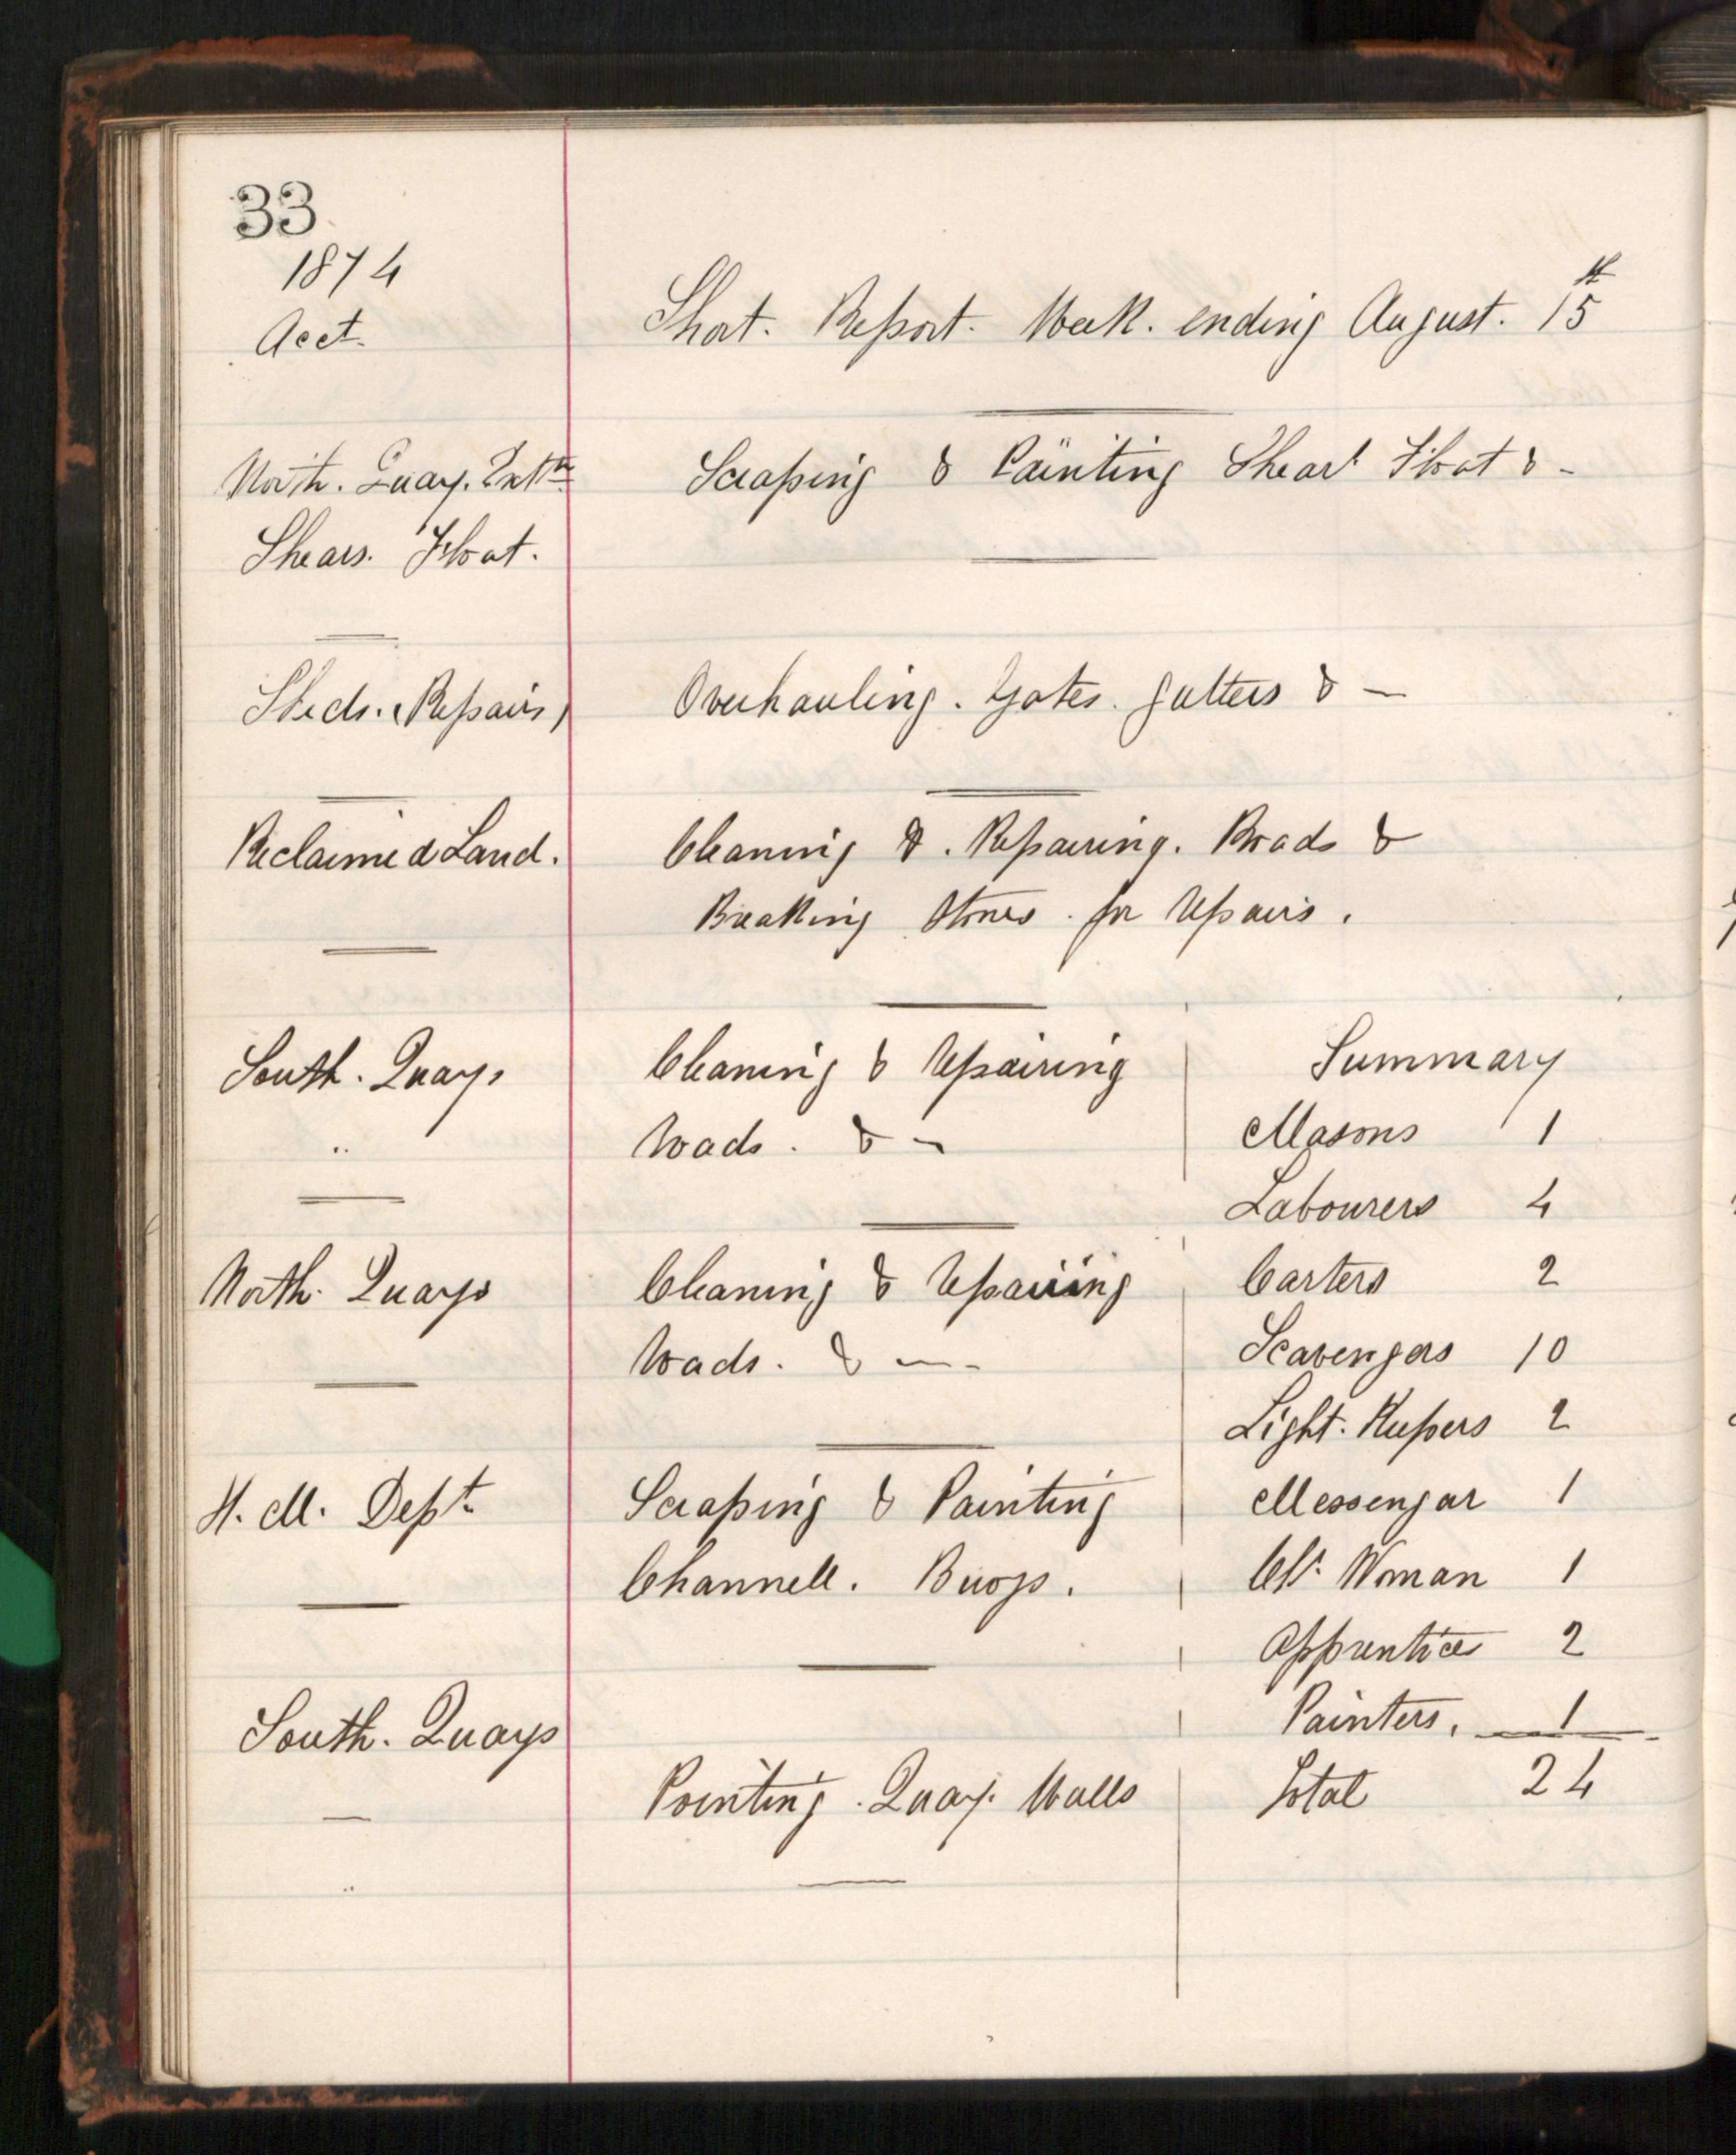 33
1874
Acct.
Short. Report. Week. ending August. 15th
North. Quay. Extn
Scraping & Painting Shears Float & -
Shears. Float.
Sheds. Repairs,
Overhauling. Gates. gutters & -
Reclaimed Land.
Cleaning &. Repairing. Roads &
Breaking Stones. for repairs.
South. Quays
Cleaning & repairing
roads. & -
North. Quays
Cleaning & repairing
roads. & -
H. M. Dept.
Scraping & Painting
Channell. Buoys.
South. Quays
Pointing. Quay. Walls
Summary
Masons 1
Labourers 4
Carters 2
Scavengers 10
Light. Keepers 2
Messengar 1
Woman 1
Apprentices 2
Painters, 1
Total 24